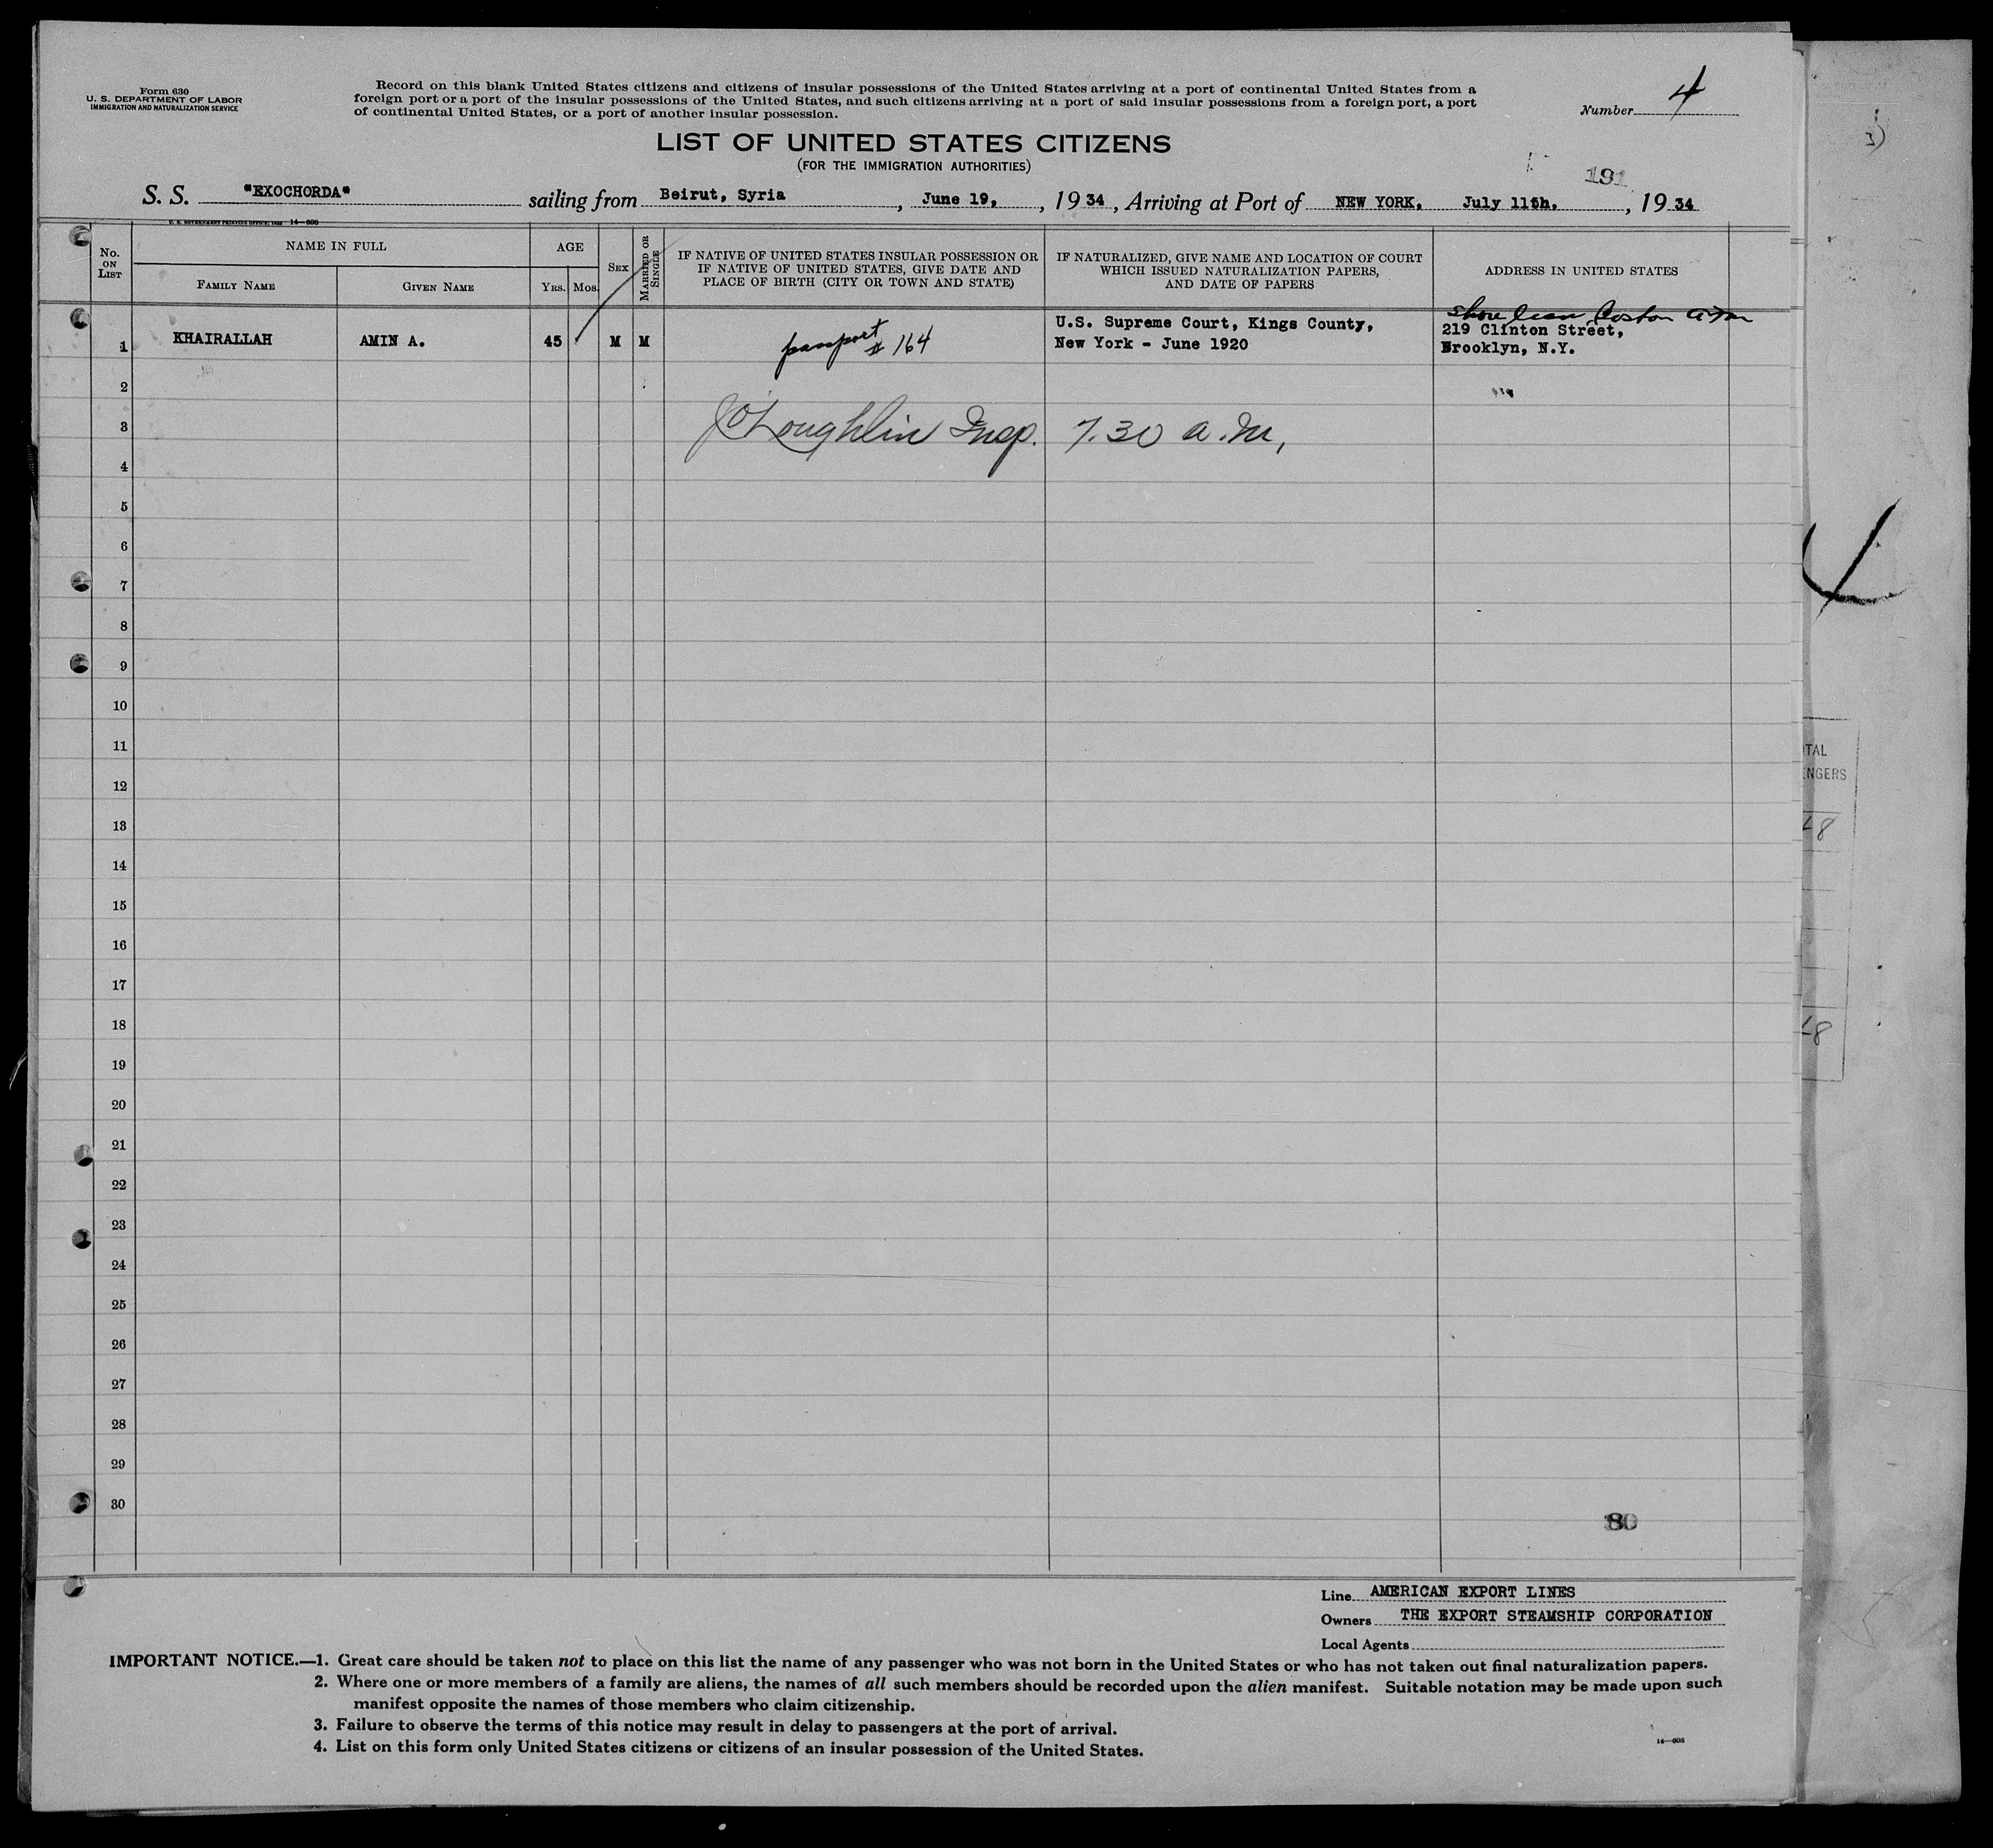 Form 630
U. S. DEPARTMENT OF LABOR
IMMIGRATION AND NATURALIZATION SERVICE
Record on this blank United States citizens and citizens of insular possessions of the United States arriving at a port of continental United States from a
foreign port or a port of the insular possessions of the United States, and such citizens arriving at a port of said insular possessions from a foreign port, a port
of continental United States, or a port of another insular possession.
Number 4
LIST OF UNITED STATES CITIZENS
(FOR THE IMMIGRATION AUTHORITIES)
191
S. S. "EXOCHORDA" sailing from Beirut, Syria, June 19, , 1934, Arriving at Port of NEW YORK, July 11th, , 1934
U. S. GOVERNMENT PRINTING OFFICE: 14—608
No. ON LIST
NAME IN FULL
FAMILY NAME
GIVEN NAME
AGE
YRS. MOS.
SEX
MARRIED OR SINGLE
IF NATIVE OF UNITED STATES INSULAR POSSESSION OR
IF NATIVE OF UNITED STATES, GIVE DATE AND
PLACE OF BIRTH (CITY OR TOWN AND STATE)
IF NATURALIZED, GIVE NAME AND LOCATION OF COURT
WHICH ISSUED NATURALIZATION PAPERS,
AND DATE OF PAPERS
ADDRESS IN UNITED STATES
1 KHAIRALLAH AMIN A. 45 M M passport # 164
U.S. Supreme Court, Kings County,
New York - June 1920
219 Clinton Street,
Brooklyn, N.Y.
2
3 J O'Loughlin Insp. 7.30 a.m,
4
5
6
7
8
9
10
11
12
13
14
15
16
17
18
19
20
21
22
23
24
25
26
27
28
29
30
80
Line AMERICAN EXPORT LINES
Owners THE EXPORT STEAMSHIP CORPORATION
Local Agents
IMPORTANT NOTICE.—1. Great care should be taken not to place on this list the name of any passenger who was not born in the United States or who has not taken out final naturalization papers.
2. Where one or more members of a family are aliens, the names of all such members should be recorded upon the alien manifest. Suitable notation may be made upon such
manifest opposite the names of those members who claim citizenship.
3. Failure to observe the terms of this notice may result in delay to passengers at the port of arrival.
4. List on this form only United States citizens or citizens of an insular possession of the United States.
14—608